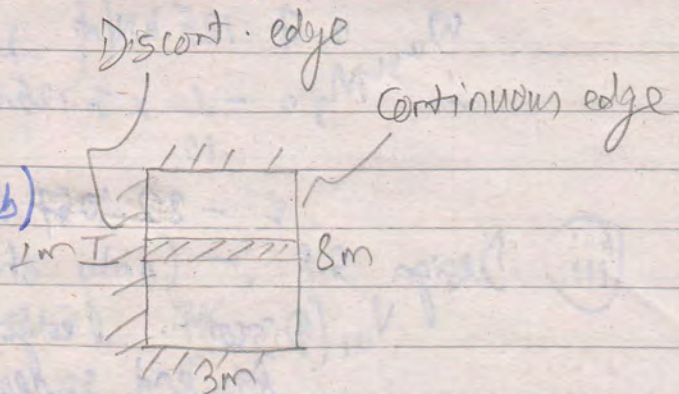 Discont. edge
Continuous edge
b)
1m
8m
3m